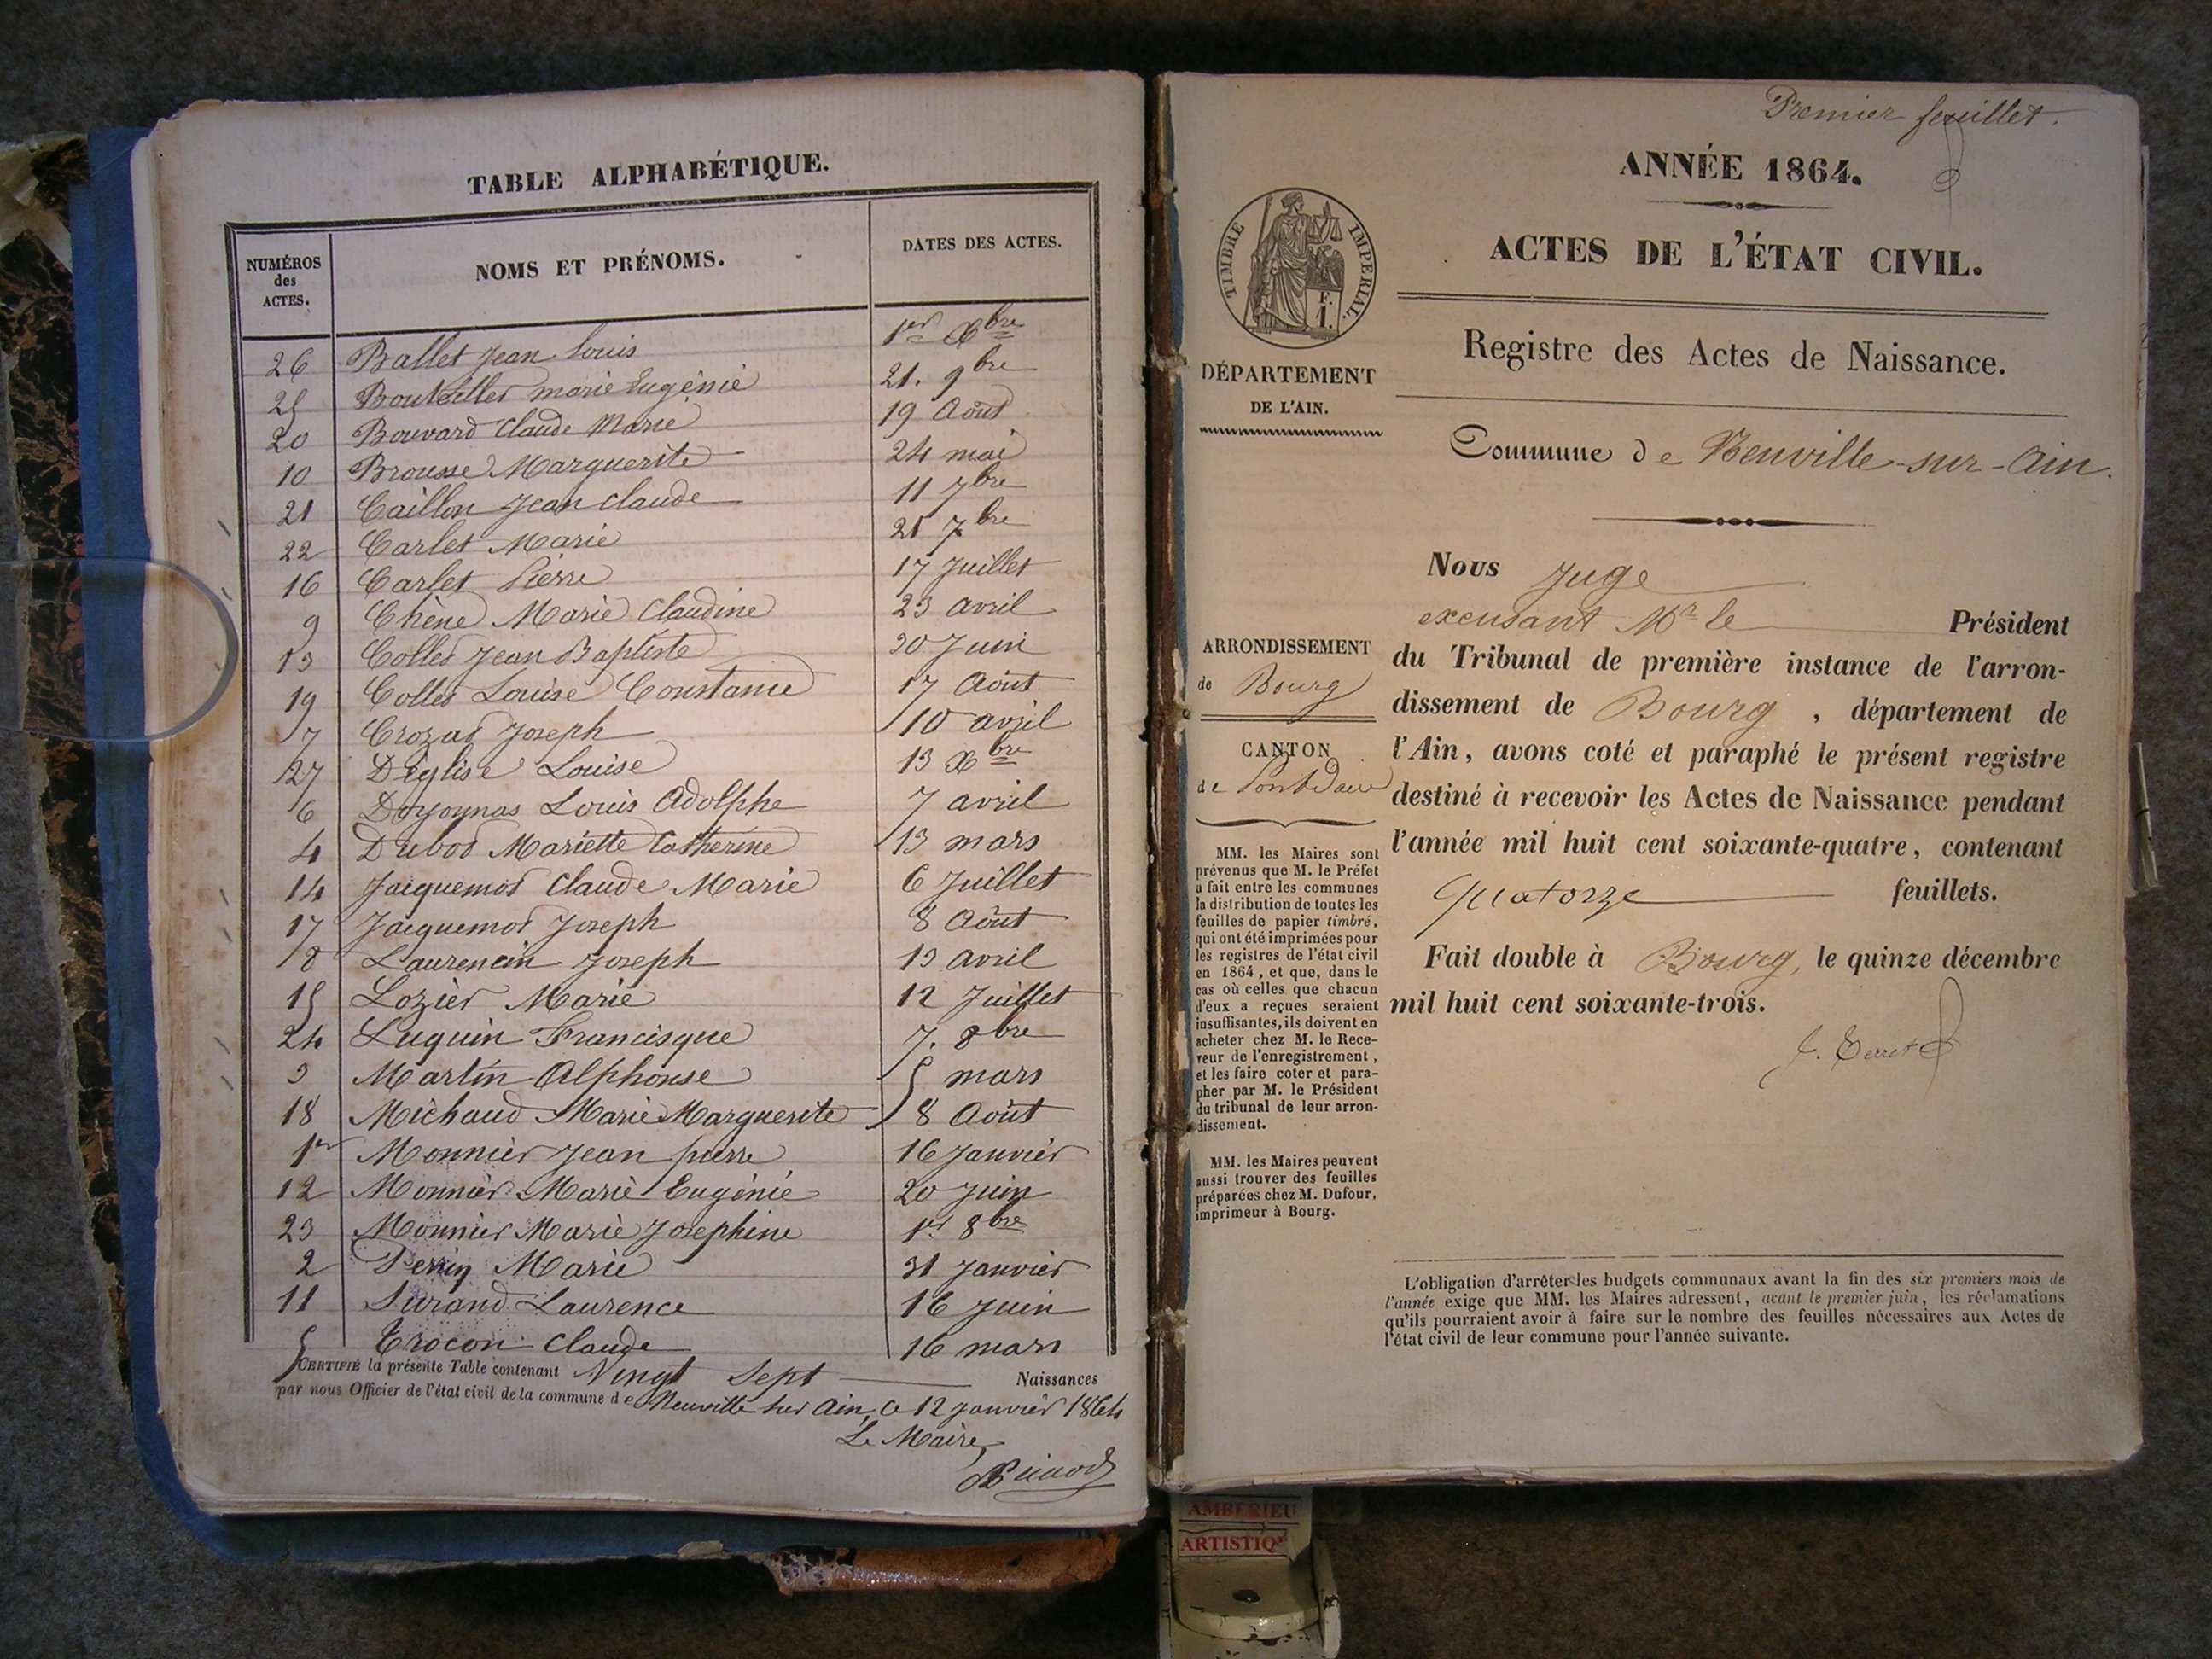 TABLE ALPHABÉTIQUE.
NUMÉROS des ACTES. NOMS ET PRÉNOMS. DATES DES ACTES.
26 Ballet Jean Louis 1er Xbre
25 marie Eugénie 21. 9bre
20 Bouvard Claude Marie 19 Août
10 Brousse Marguerite 24 mai
21 Caillon Jean Claude 11 7bre
22 Carlet Marie 21 7bre
16 Carlet Pierre 17 Juillet
9 Chêne Marie Claudine 23 avril
13 Collet Jean Baptiste 30 Juin
19 Collet Louise Constance 17 Août
7 Crozat Joseph 10 avril
27 Déglise Louise 13 Xbre
6 Louis Adolphe 7 avril
4 Dubod Mariette Catherine 13 mars
14 Jacquemot Claude Marie 6 Juillet
17 Jacquemot Joseph 8 Août
8 Laurencin Joseph 13 avril
15 Lozier Marie 12 Juillet
24 Luquin Francisque 7. 8bre
3 Martin Alphonse 5 mars
18 Michaud Marie Marguerite 8 Août
1er Monnier Jean pierre 16 Janvier
12 Monnier Marie Eugénie 20 Juin
23 Monnier Marie Josephine 1er 8bre
2 Perrin Marie 31 Janvier
11 Surand Laurence 16 Juin
5 Trocon Claude 16 mars
CERTIFIÉ la présente Table contenant Vingt Sept Naissances
par nous Officier de l'état civil de la commune de Neuville sur Ain, ce 12 Janvier 1864
Le Maire
Premier feuillet.
ANNÉE 1864.
TIMBRE IMPERIAL.
F.
1.
ACTES DE L'ÉTAT CIVIL.
Registre des Actes de Naissance.
DÉPARTEMENT
DE L'AIN.
Commune de Neuville-sur-Ain.
Nous Juge
excusant Mr le Président
du Tribunal de première instance de l'arron-
dissement de Bourg, département de
l'Ain, avons coté et paraphé le présent registre
destiné à recevoir les Actes de Naissance pendant
l'année mil huit cent soixante-quatre, contenant
quatorze feuillets.
Fait double à Bourg, le quinze décembre
mil huit cent soixante-trois.
ARRONDISSEMENT
de Bourg
CANTON
de Pontdain
MM. les Maires sont
prévenus que M. le Préfet
a fait entre les communes
la distribution de toutes les
feuilles de papier timbré,
qui ont été imprimées pour
les registres de l'état civil
en 1864, et que, dans le
cas où celles que chacun
d'eux a reçues seraient
insuffisantes, ils doivent en
acheter chez M. le Rece-
veur de l'enregistrement,
et les faire coter et para-
pher par M. le Président
du tribunal de leur arron-
dissement.
MM. les Maires peuvent
aussi trouver des feuilles
préparées chez M. Dufour,
imprimeur à Bourg.
L'obligation d'arrêter les budgets communaux avant la fin des six premiers mois de
l'année exige que MM. les Maires adressent, avant le premier juin, les réclamations
qu'ils pourraient avoir à faire sur le nombre des feuilles nécessaires aux Actes de
l'état civil de leur commune pour l'année suivante.
AMBERIEU
ARTISTIQ